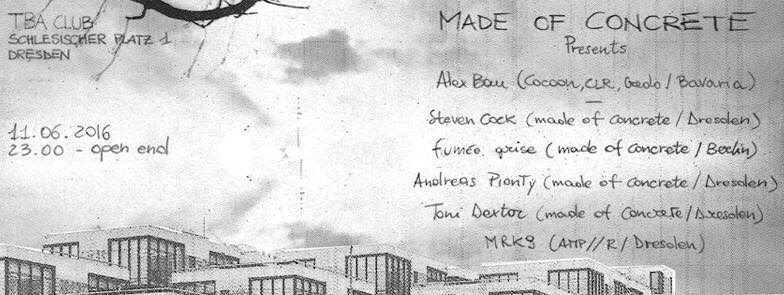 TBA CLUB
SCHLESISCHER PLATZ 1
DRESDEN
11.06.2016
23.00 - open end
MADE OF CONCRETE
Presents
Alex Bau (Cocoon, CLR, Credo / Bavaria)
Steven Cock (made of concrete / Dresden)
fumée grise (made of concrete / Berlin)
Andreas Pionty (made of concrete / Dresden)
Toni Dextor (made of Concrete / Dresden)
MRK9 (AMP//R / Dresden)